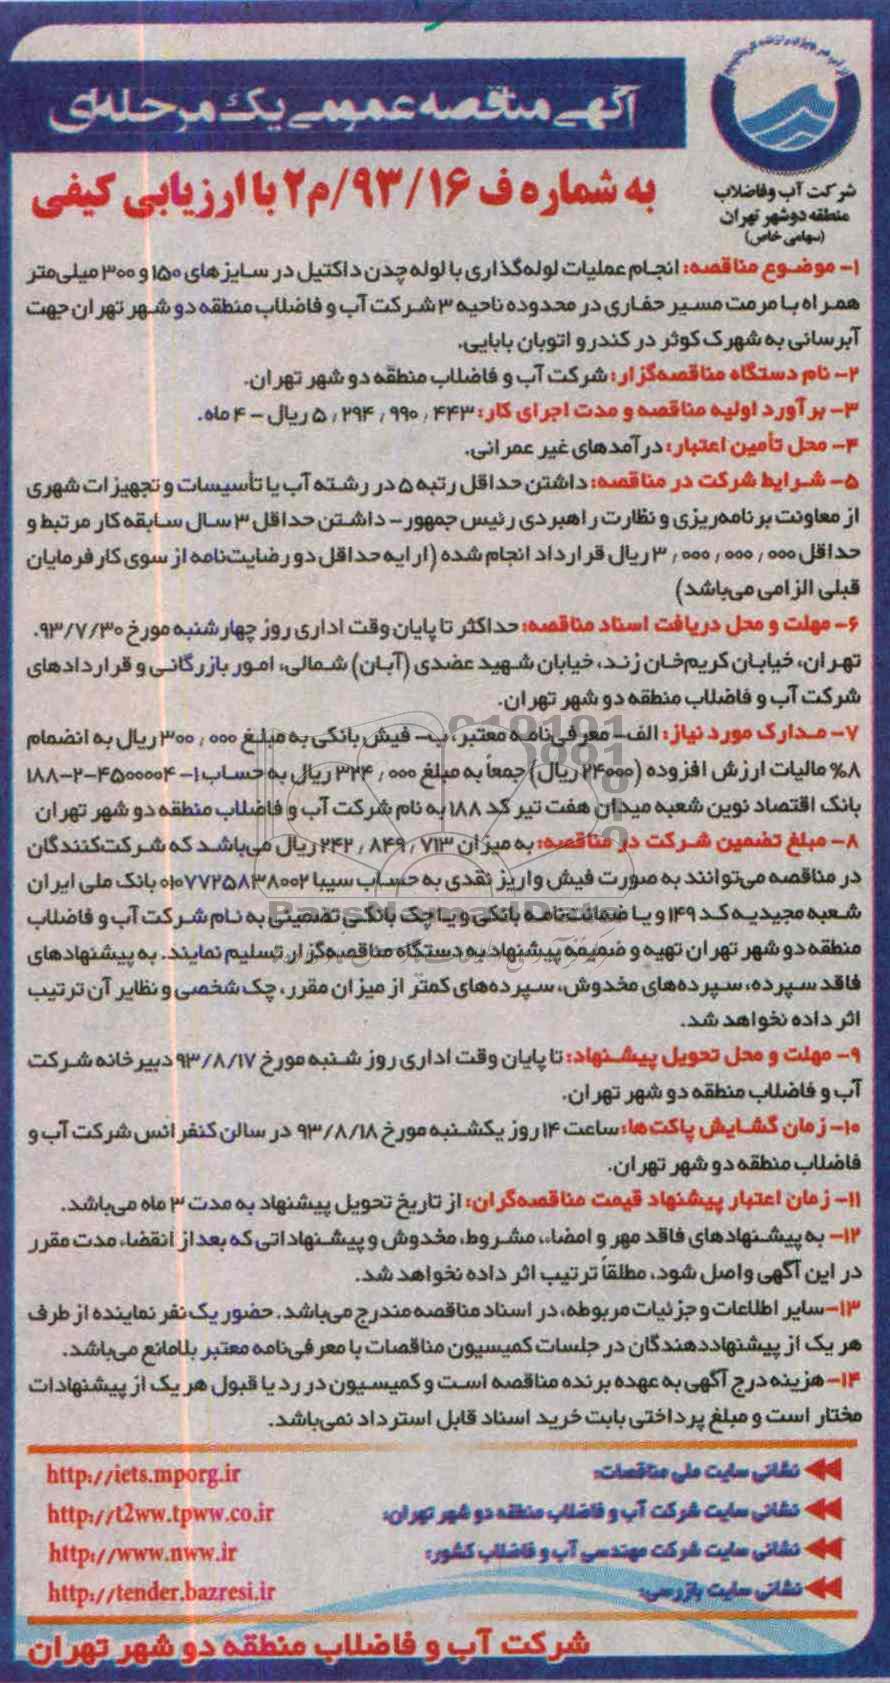 آگهی مناقصه عمومی یک مرحله‌ای
شرکت آب وفاضلاب
منطقه دوشهر تهران
(سهامی خاص)
به شماره ف ۹۳/۱۶/م۲ با ارزیابی کیفی
۱- موضوع مناقصه: انجام عملیات لوله‌گذاری با لوله چدن داکتیل در سایزهای ۱۵۰ و ۳۰۰ میلی‌متر
همراه با مرمت مسیر حفاری در محدوده ناحیه ۳ شرکت آب و فاضلاب منطقه دو شهر تهران جهت
آبرسانی به شهرک کوثر در کندرو اتوبان بابایی.
۲- نام دستگاه مناقصه‌گزار: شرکت آب و فاضلاب منطقه دو شهر تهران.
۳- برآورد اولیه مناقصه و مدت اجرای کار: ۵٫۲۹۴٫۹۹۰٫۴۴۳ ریال - ۴ ماه.
۴- محل تأمین اعتبار: درآمدهای غیر عمرانی.
۵- شرایط شرکت در مناقصه: داشتن حداقل رتبه ۵ در رشته آب یا تأسیسات و تجهیزات شهری
از معاونت برنامه‌ریزی و نظارت راهبردی رئیس جمهور - داشتن حداقل ۳ سال سابقه کار مرتبط و
حداقل ۳٫۰۰۰٫۰۰۰٫۰۰۰ ریال قرارداد انجام شده (ارایه حداقل دو رضایت‌نامه از سوی کارفرمایان
قبلی الزامی می‌باشد)
۶- مهلت و محل دریافت اسناد مناقصه: حداکثر تا پایان وقت اداری روز چهارشنبه مورخ ۹۳/۷/۳۰.
تهران، خیابان کریم‌خان زند، خیابان شهید عضدی (آبان) شمالی، امور بازرگانی و قراردادهای
شرکت آب و فاضلاب منطقه دو شهر تهران.
۷- مدارک مورد نیاز: الف- معرفی‌نامه معتبر، ب- فیش بانکی به مبلغ ۳۰۰٫۰۰۰ ریال به انضمام
۸% مالیات ارزش افزوده (۲۴۰۰۰ ریال) جمعاً به مبلغ ۳۲۴٫۰۰۰ ریال به حساب ۱-۴۵۰۰۰۰۴-۲-۱۸۸
بانک اقتصاد نوین شعبه میدان هفت تیر کد ۱۸۸ به نام شرکت آب و فاضلاب منطقه دو شهر تهران
۸- مبلغ تضمین شرکت در مناقصه: به میزان ۲۴۲٫۸۴۹٫۷۱۳ ریال می‌باشد که شرکت‌کنندگان
در مناقصه می‌توانند به صورت فیش واریز نقدی به حساب سیبا ۰۱۰۷۷۲۵۸۳۸۰۰۲ بانک ملی ایران
شعبه مجیدیه کد ۱۴۹ و یا ضمانت‌نامه بانکی و یا چک بانکی تضمینی به نام شرکت آب و فاضلاب
منطقه دو شهر تهران تهیه و ضمیمه پیشنهاد به دستگاه مناقصه‌گزار تسلیم نمایند. به پیشنهادهای
فاقد سپرده، سپرده‌های مخدوش، سپرده‌های کمتر از میزان مقرر، چک شخصی و نظایر آن ترتیب
اثر داده نخواهد شد.
۹- مهلت و محل تحویل پیشنهاد: تا پایان وقت اداری روز شنبه مورخ ۹۳/۸/۱۷ دبیرخانه شرکت
آب و فاضلاب منطقه دو شهر تهران.
۱۰- زمان گشایش پاکت‌ها: ساعت ۱۴ روز یکشنبه مورخ ۹۳/۸/۱۸ در سالن کنفرانس شرکت آب و
فاضلاب منطقه دو شهر تهران.
۱۱- زمان اعتبار پیشنهاد قیمت مناقصه‌گران: از تاریخ تحویل پیشنهاد به مدت ۳ ماه می‌باشد.
۱۲- به پیشنهادهای فاقد مهر و امضاء، مشروط، مخدوش و پیشنهاداتی که بعد از انقضاء مدت مقرر
در این آگهی واصل شود، مطلقاً ترتیب اثر داده نخواهد شد.
۱۳- سایر اطلاعات و جزئیات مربوطه، در اسناد مناقصه مندرج می‌باشد. حضور یک نفر نماینده از طرف
هر یک از پیشنهاددهندگان در جلسات کمیسیون مناقصات با معرفی‌نامه معتبر بلامانع می‌باشد.
۱۴- هزینه درج آگهی به عهده برنده مناقصه است و کمیسیون در رد یا قبول هر یک از پیشنهادات
مختار است و مبلغ پرداختی بابت خرید اسناد قابل استرداد نمی‌باشد.
نشانی سایت ملی مناقصات: http://iets.mporg.ir
نشانی سایت شرکت آب و فاضلاب منطقه دو شهر تهران: http://t2ww.tpww.co.ir
نشانی سایت شرکت مهندسی آب و فاضلاب کشور: http://www.nww.ir
نشانی سایت بازرسی: http://tender.bazresi.ir
شرکت آب و فاضلاب منطقه دو شهر تهران